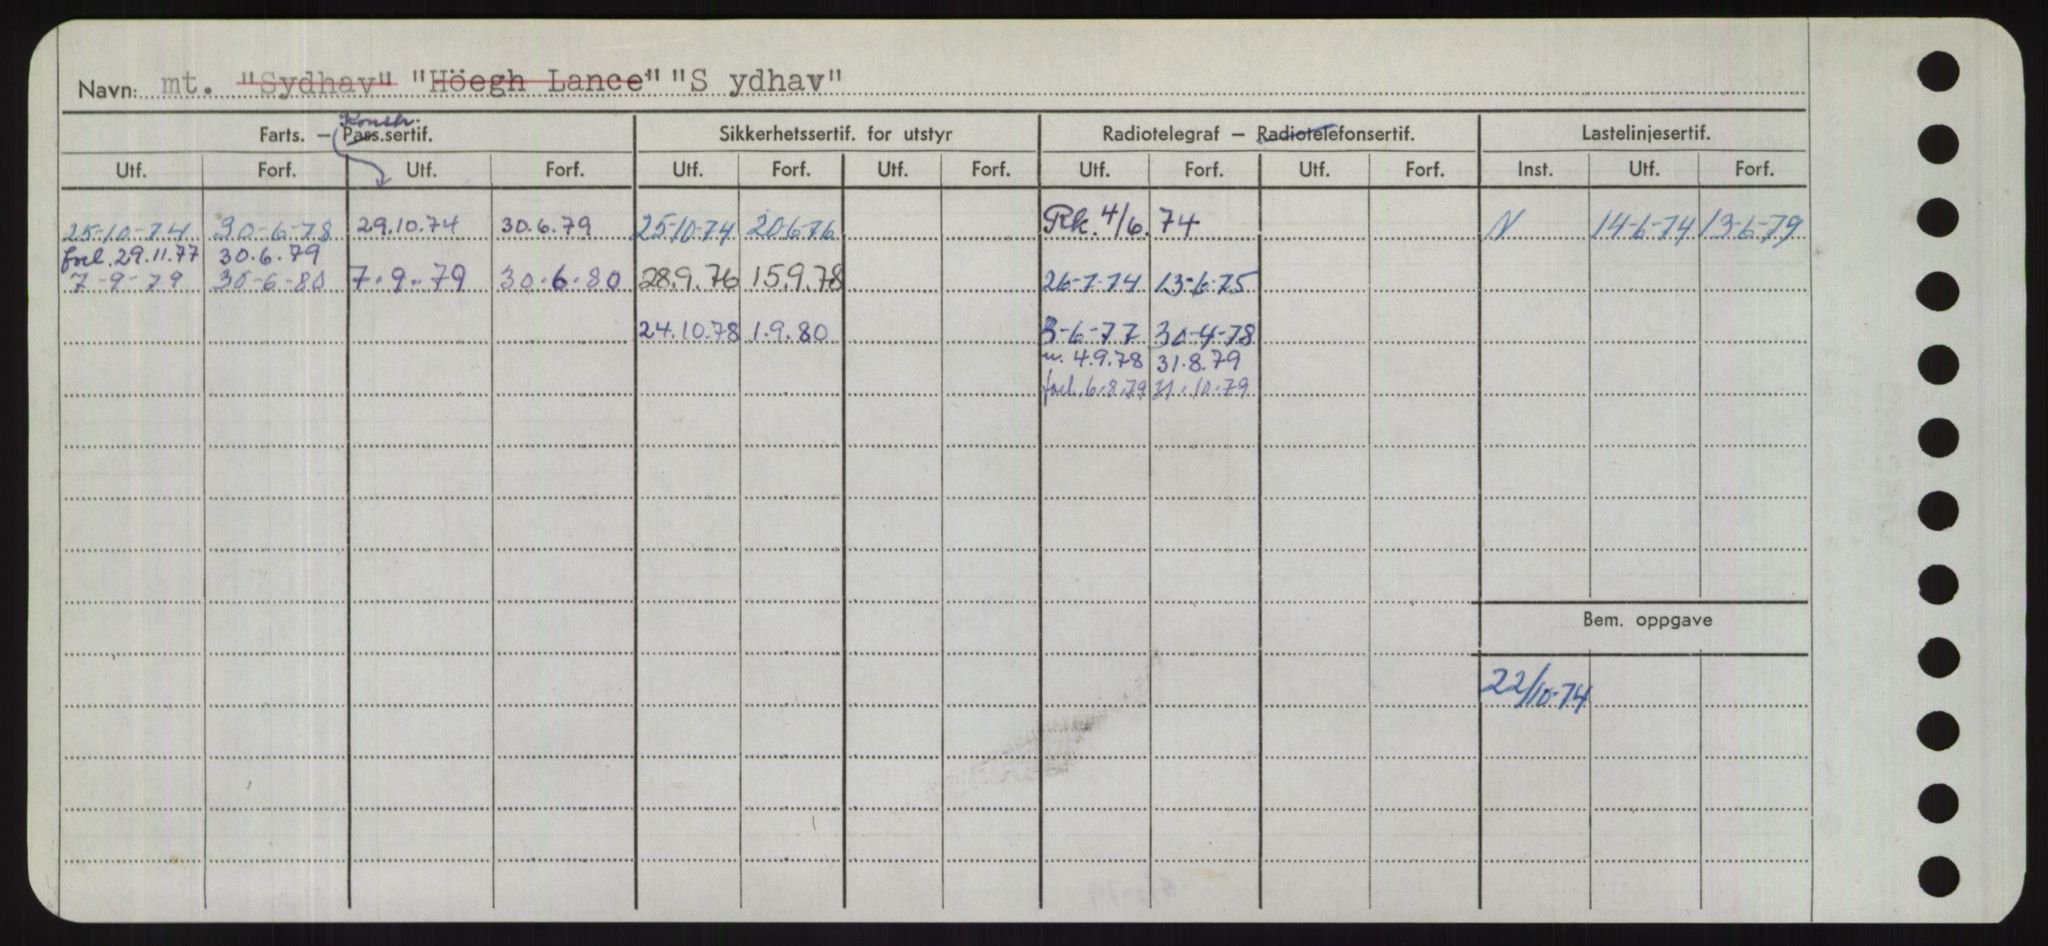 Navn: mt. "Sydhav" "Höegh Lance" "S ydhav"
Konstr.
Farts. – Pass.sertif. Sikkerhetssertif. for utstyr Radiotelegraf – Radiotelefonsertif. Lastelinjesertif.
Utf. Forf. Utf. Forf. Utf. Forf. Utf. Forf. Utf. Forf. Utf. Forf. Inst. Utf. Forf.
25-10-74 30-6-78 29.10.74 30.6.79 25-10-74 20-6-76 Rk. 4/6.74 N 14-6-74 13-6-79
forl. 29.11.77 30.6.79
7-9-79 30-6-80 7.9.79 30.6.80 28.9.76 15.9.78 26-7-74 13-6-75
24.10.78 1.9.80 3-6-77 30-4-78
u. 4.9.78 31.8.79
forl. 6.8.79 31.10.79
Bem. oppgave
22/10-74